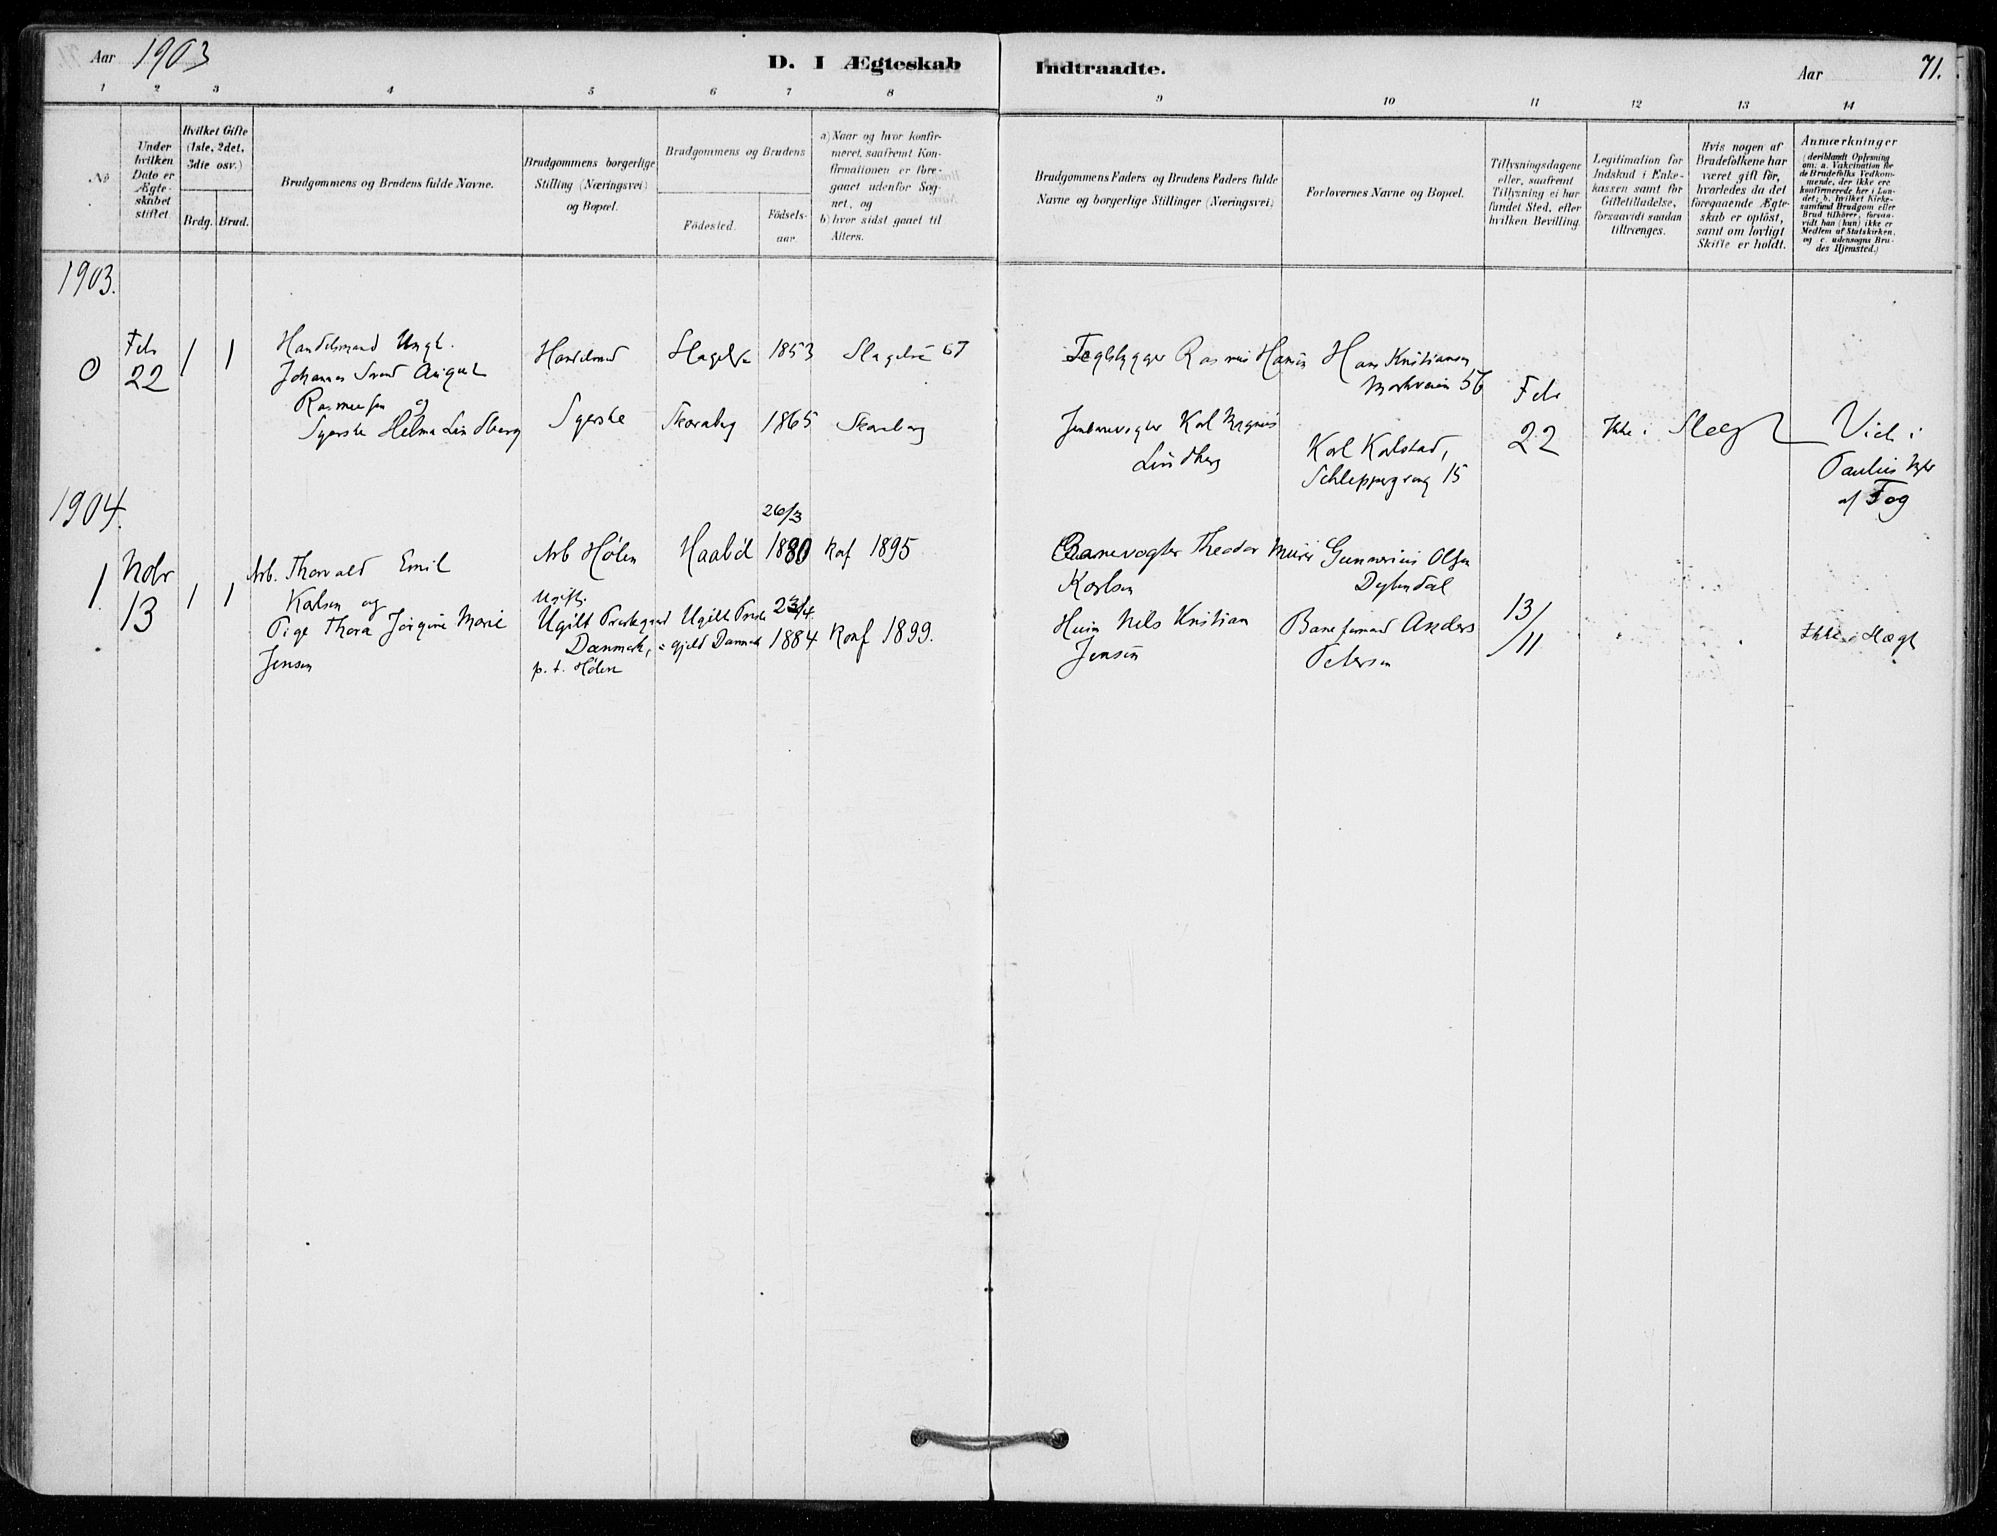 Aar 1903
D. I Ægteskab
Indtraadte.
Aar
71.
1 2 3 4 5 6 7 8
9 10 11 12 13 14
No
Under
hvilken
Dato er
Ægte-
skabet
stiftet
Hvilket Gifte
(1ste, 2det,
3die osv.)
Brdg. Brud.
Brudgommens og Brudens fulde Navne.
Brudgommens borgerlige
Stilling (Næringsvei)
og Bopæl.
Brudgommens og Brudens
Fødested.
Fødsels-
aar.
a) Naar og hvor konfir-
meret, saafremt Kon-
firmationen er fore-
gaaet udenfor Sog-
net, og
b) hvor sidst gaaet til
Alters.
Brudgommens Faders og Brudens Faders fulde
Navne og borgerlige Stillinger (Næringsvei)
Forlovernes Navne og Bopæl.
Tillysningsdagene
eller, saafremt
Tillysning ei har
fundet Sted, efter
hvilken Bevilling.
Legitimation for
Indskud i Enke-
kassen samt for
Giftetilladelse,
forsaavidt saadan
tiltrænges.
Hvis nogen af
Brudefolkene har
været gift før,
hvorledes da det
foregaaende Ægte-
skab er opløst,
samt om lovligt
Skifte er holdt.
Anmærkninger
(deriblandt Oplysning
om: a. Vakcination for
de Brudefolks Vedkom-
mende, der ikke ere
konfirmerede her i Lan-
det; b. hvilket Kirke-
samfund Brudgom eller
Brud tilhører, forsaa-
vidt han (hun) ikke er
Medlem af Statskirken,
og c. udensogns Bru-
des Hjemsted.)
1903.
0
Feb
22
1 1
Handelsmand Ungk.
Johannes Svend August
Rasmussen og
Syerske Helma Lindberg
Handelsmand
Syerske
Slagelse 1853 Slagelse 67
Skaraborg 1865 Skaraborg
Teglbygger Rasmus Hansen
Jernbanevogter Karl Magnus
Lindberg
Hans Kristiansen
Markveien 56
Karl Karlstad,
Schleppegreng 15
Feb
22
Ikke i Slægt
Viet i
Paulus
af Fog
1904.
1.
Nobr
13
1 1
Arb. Thorvald Emil
Karlsen og
Pige Thora Jørgine Marie
Jensen
Arb Hølen
Ugift.
Ugilt Prestegjeld
Danmark,
p. t. Hølen
Haabøl
Ugilt Preste
gjeld Danmark
26/3
1880
23/4
1884
Konf 1895
Konf 1899.
Banevogter Theodor
Karlsen
Nils Kristian
Jensen
Murer Gunnerius Olsen
Dylendal
Baneformand Anders
Petersen
13/11
" "
Ikke i Slægt